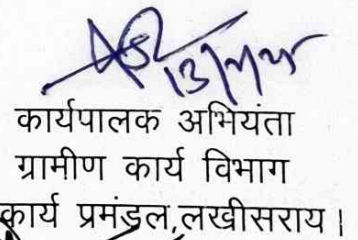 कार्यपालक अभियंता
ग्रामीण कार्य विभाग
कार्य प्रमंडल,लखीसराय।